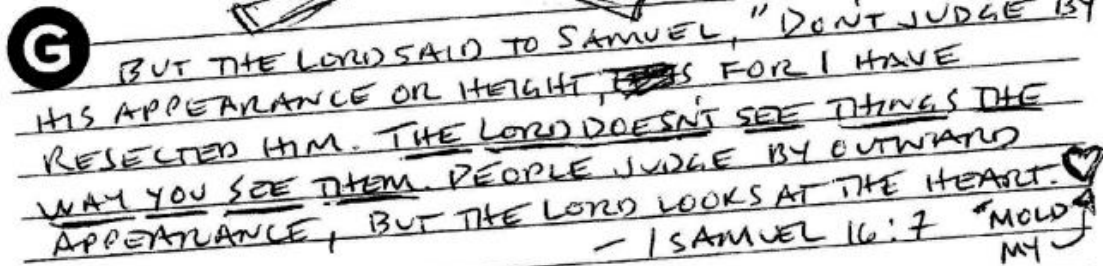 G
BUT THE LORD SAID TO SAMUEL, "DON'T JUDGE BY
HIS APPEARANCE OR HEIGHT, FOR I HAVE
REJECTED HIM. THE LORD DOESN'T SEE THINGS THE
WAY YOU SEE THEM. PEOPLE JUDGE BY OUTWARD
APPEARANCE, BUT THE LORD LOOKS AT THE HEART.
— 1 SAMUEL 16:7 "MOLD
MY